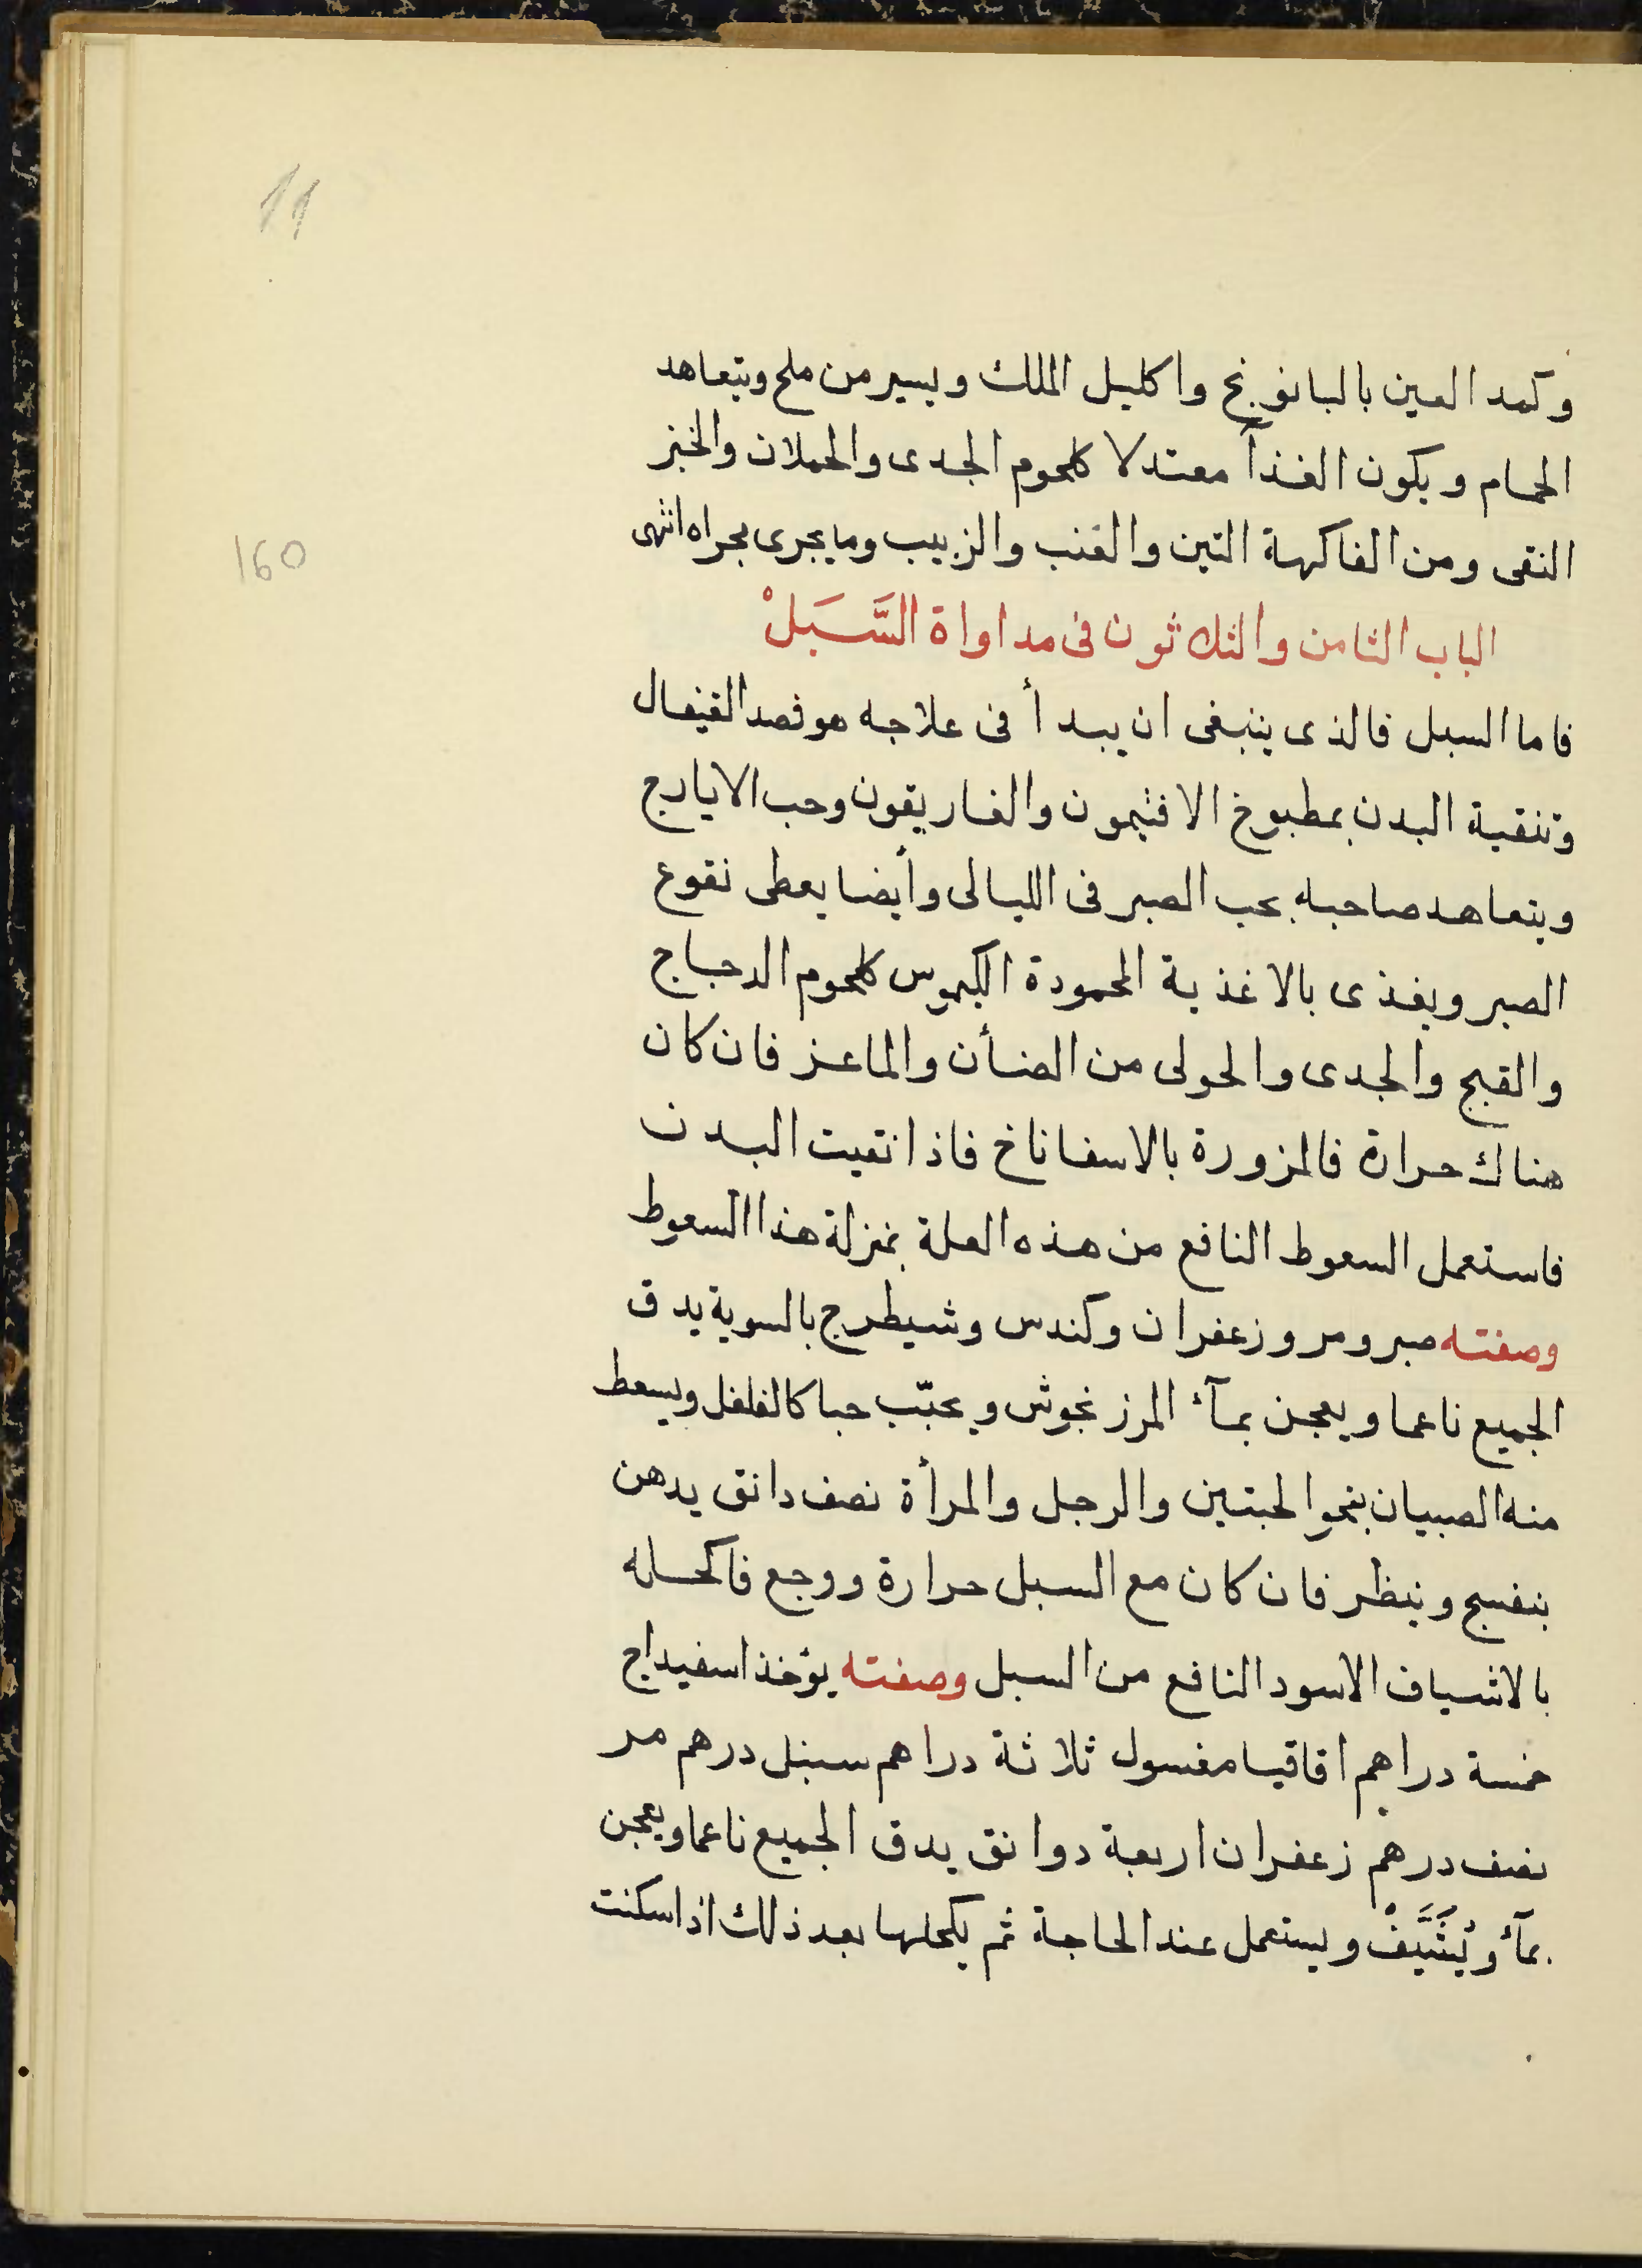 11
وكمد العين بالبانونج واكليل الملك ويسير من ملح ويتعاهد
الحمام ويكون الغذآ معتدلا كلحوم الجدى والحملان والخبز
النقى ومن الفاكهة التين والعنب والزبيب وما يجرى مجراه انتهى
160
الباب الثامن والثلاثون فى مداواة السَّبَلْ
فاما السبل فالذى ينبغى ان يبدأ فى علاجه هو فصد القيفال
وتنقية البدن بمطبوخ الافتيمون والغاريقون وحب الايارج
ويتعاهد صاحبه بحب الصبر فى الليالى وأيضا يعطى نقوع
الصبر ويغذى بالاغذية المحمودة الكيموس كلحوم الدجاج
والقبج والجدى والحولى من الضأن والماعز فان كان
هناك حرارة فالمزورة بالاسفاناخ فاذا نقيت البدن
فاستعمل السعوط النافع من هذه العلة بمنزلة هذا السعوط
وصفته صبر ومر وزعفران وكندس وشيطرج بالسوية يدق
الجميع ناعما ويعجن بمآء المرزنجوش ويحبّب حبا كالفلفل ويسعط
منه الصبيان بنحو الحبتين والرجل والمرأة نصف دانق يدهن
بنفسج وينظر فان كان مع السبل حرارة ووجع فاكحله
بالاشياف الاسود النافع من السبل وصفته يؤخذ اسفيداج
خمسة دراهم اقاقيا مغسول ثلاثة دراهم سنبل درهم مر
نصف درهم زعفران اربعة دوانق يدق الجميع ناعما ويعجن
بمآء ويُشَيَّفْ ويستعمل عند الحاجة ثم يكحلها بعد ذلك اذا سكنت